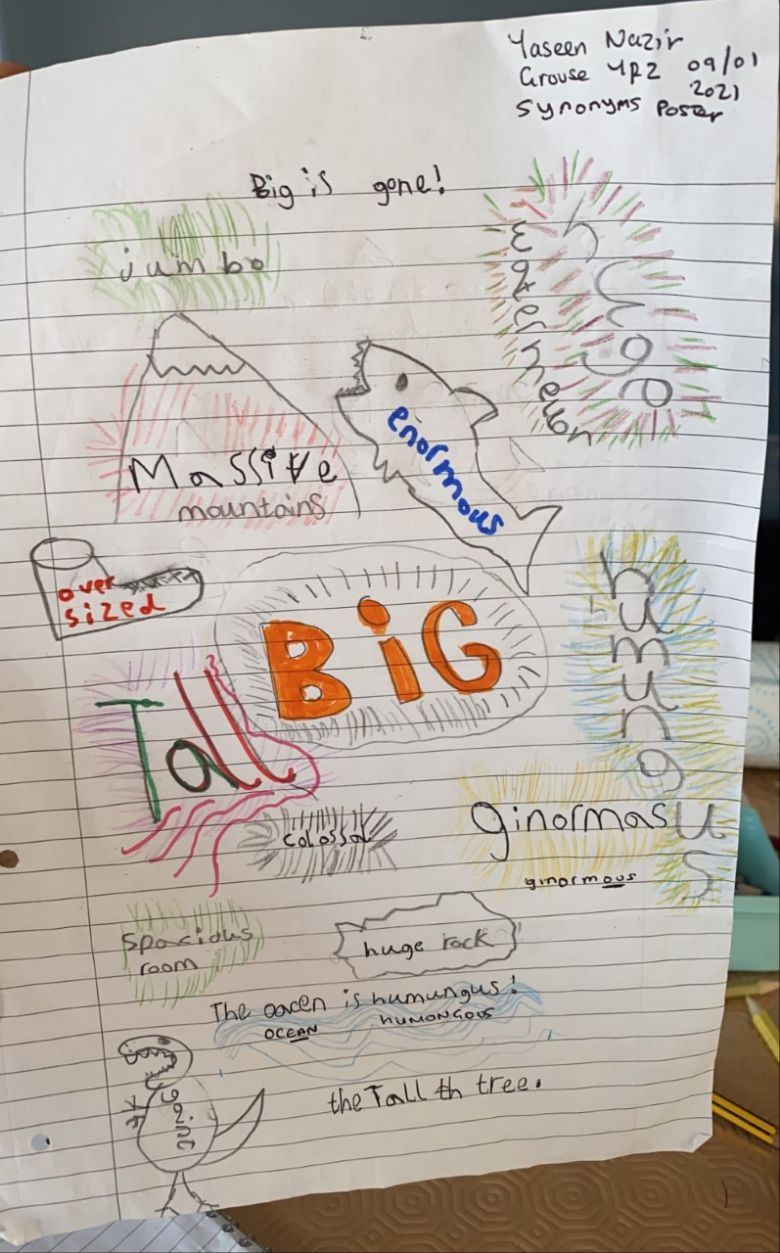 Yaseen Nazir
Grouse YR2 09/01
2021
Synonyms Poster
Big is gone!
jumbo
huge
watermelon
Massive
mountains
enormous
over
sized
BiG
humungus
Tall
colossal
ginormas
ginormous
Spacious
room
huge rock
The oacen is humungus!
OCEAN HUMONGOUS
gaint
the Tall th tree.